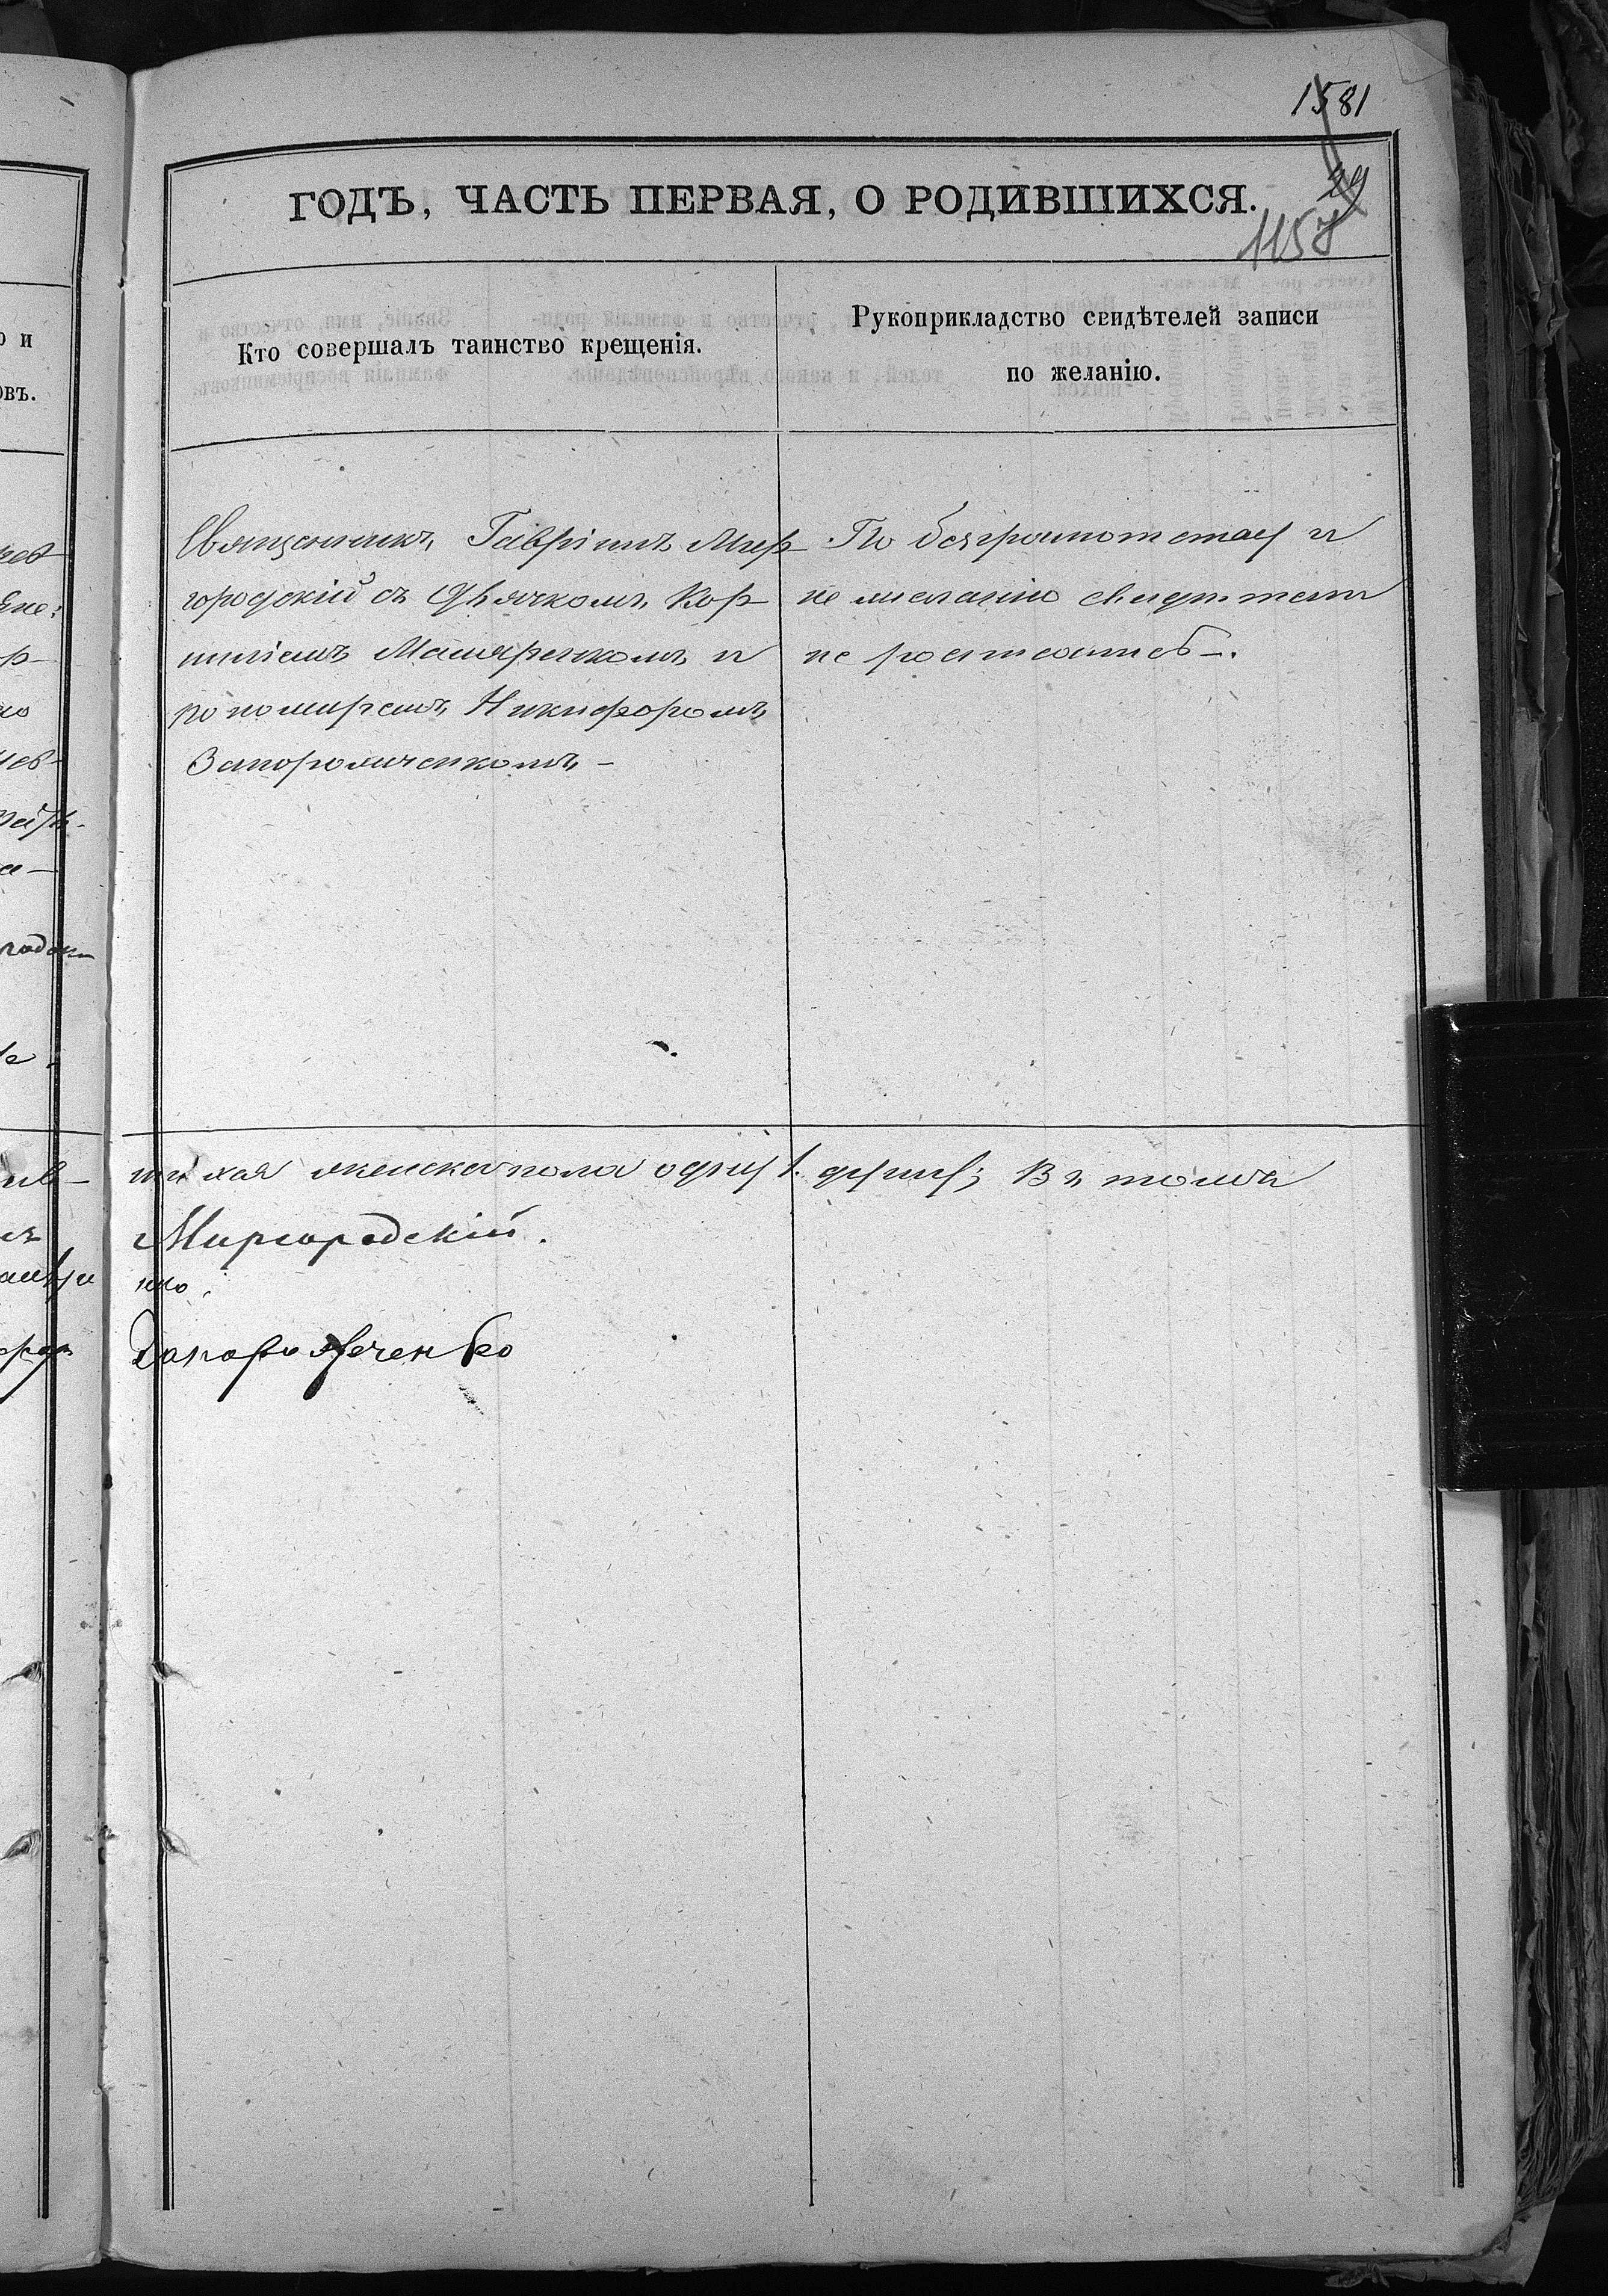 1581
29
1157
ГОДЪ, ЧАСТЬ ПЕРВАЯ, О РОДИВШИХСЯ.
Кто совершалъ таинство крещенія.
Рукоприкладство свидѣтелей записи
по желанію.
Священникъ Гавріилъ Мир
городскій съ Дьячкомъ Кор
ниліемъ и
пономаремъ Никифоромъ
Запорожченкомъ –
По безграмотству и
не желанію свидѣтели
не
женска пола одну 1. душу; Въ томъ
Миргородскій.
нко.
Запорожченко